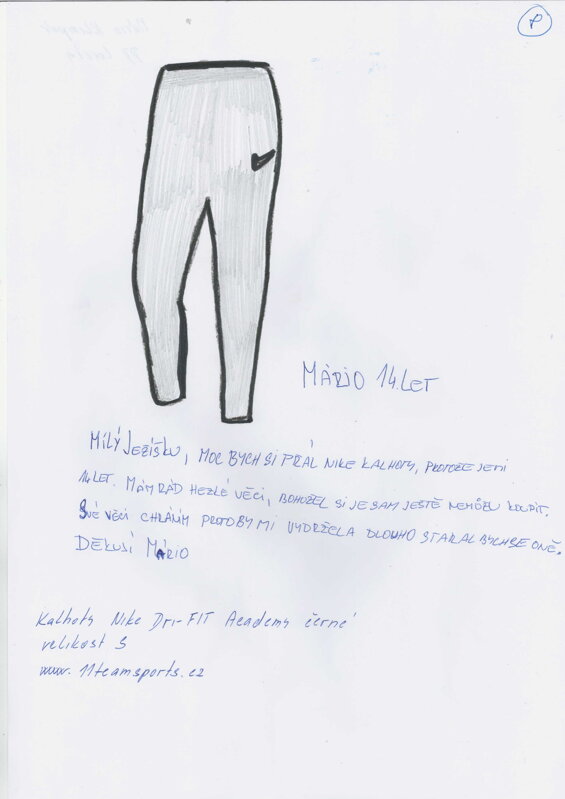 P
MÁRIO 14.LET
MILÝ JEŽÍŠKU, MOC BYCH SI PŘÁL NIKE KALHOTY, PROTOŽE JE MI
14 LET. MÁM RÁD HEZKÉ VĚCI, BOHUŽEL SI JE SAM JEŠTĚ NEMŮŽU KOUPIT.
SVÉ VĚCI CHRÁNÍM PROTO BY MI VYDRŽELA DLOUHO STARAL BYCH SE O NĚ.
DĚKUJI MÁRIO
Kalhoty Nike Dri-FIT Academy černé
velikost S
www.11teamsports.cz